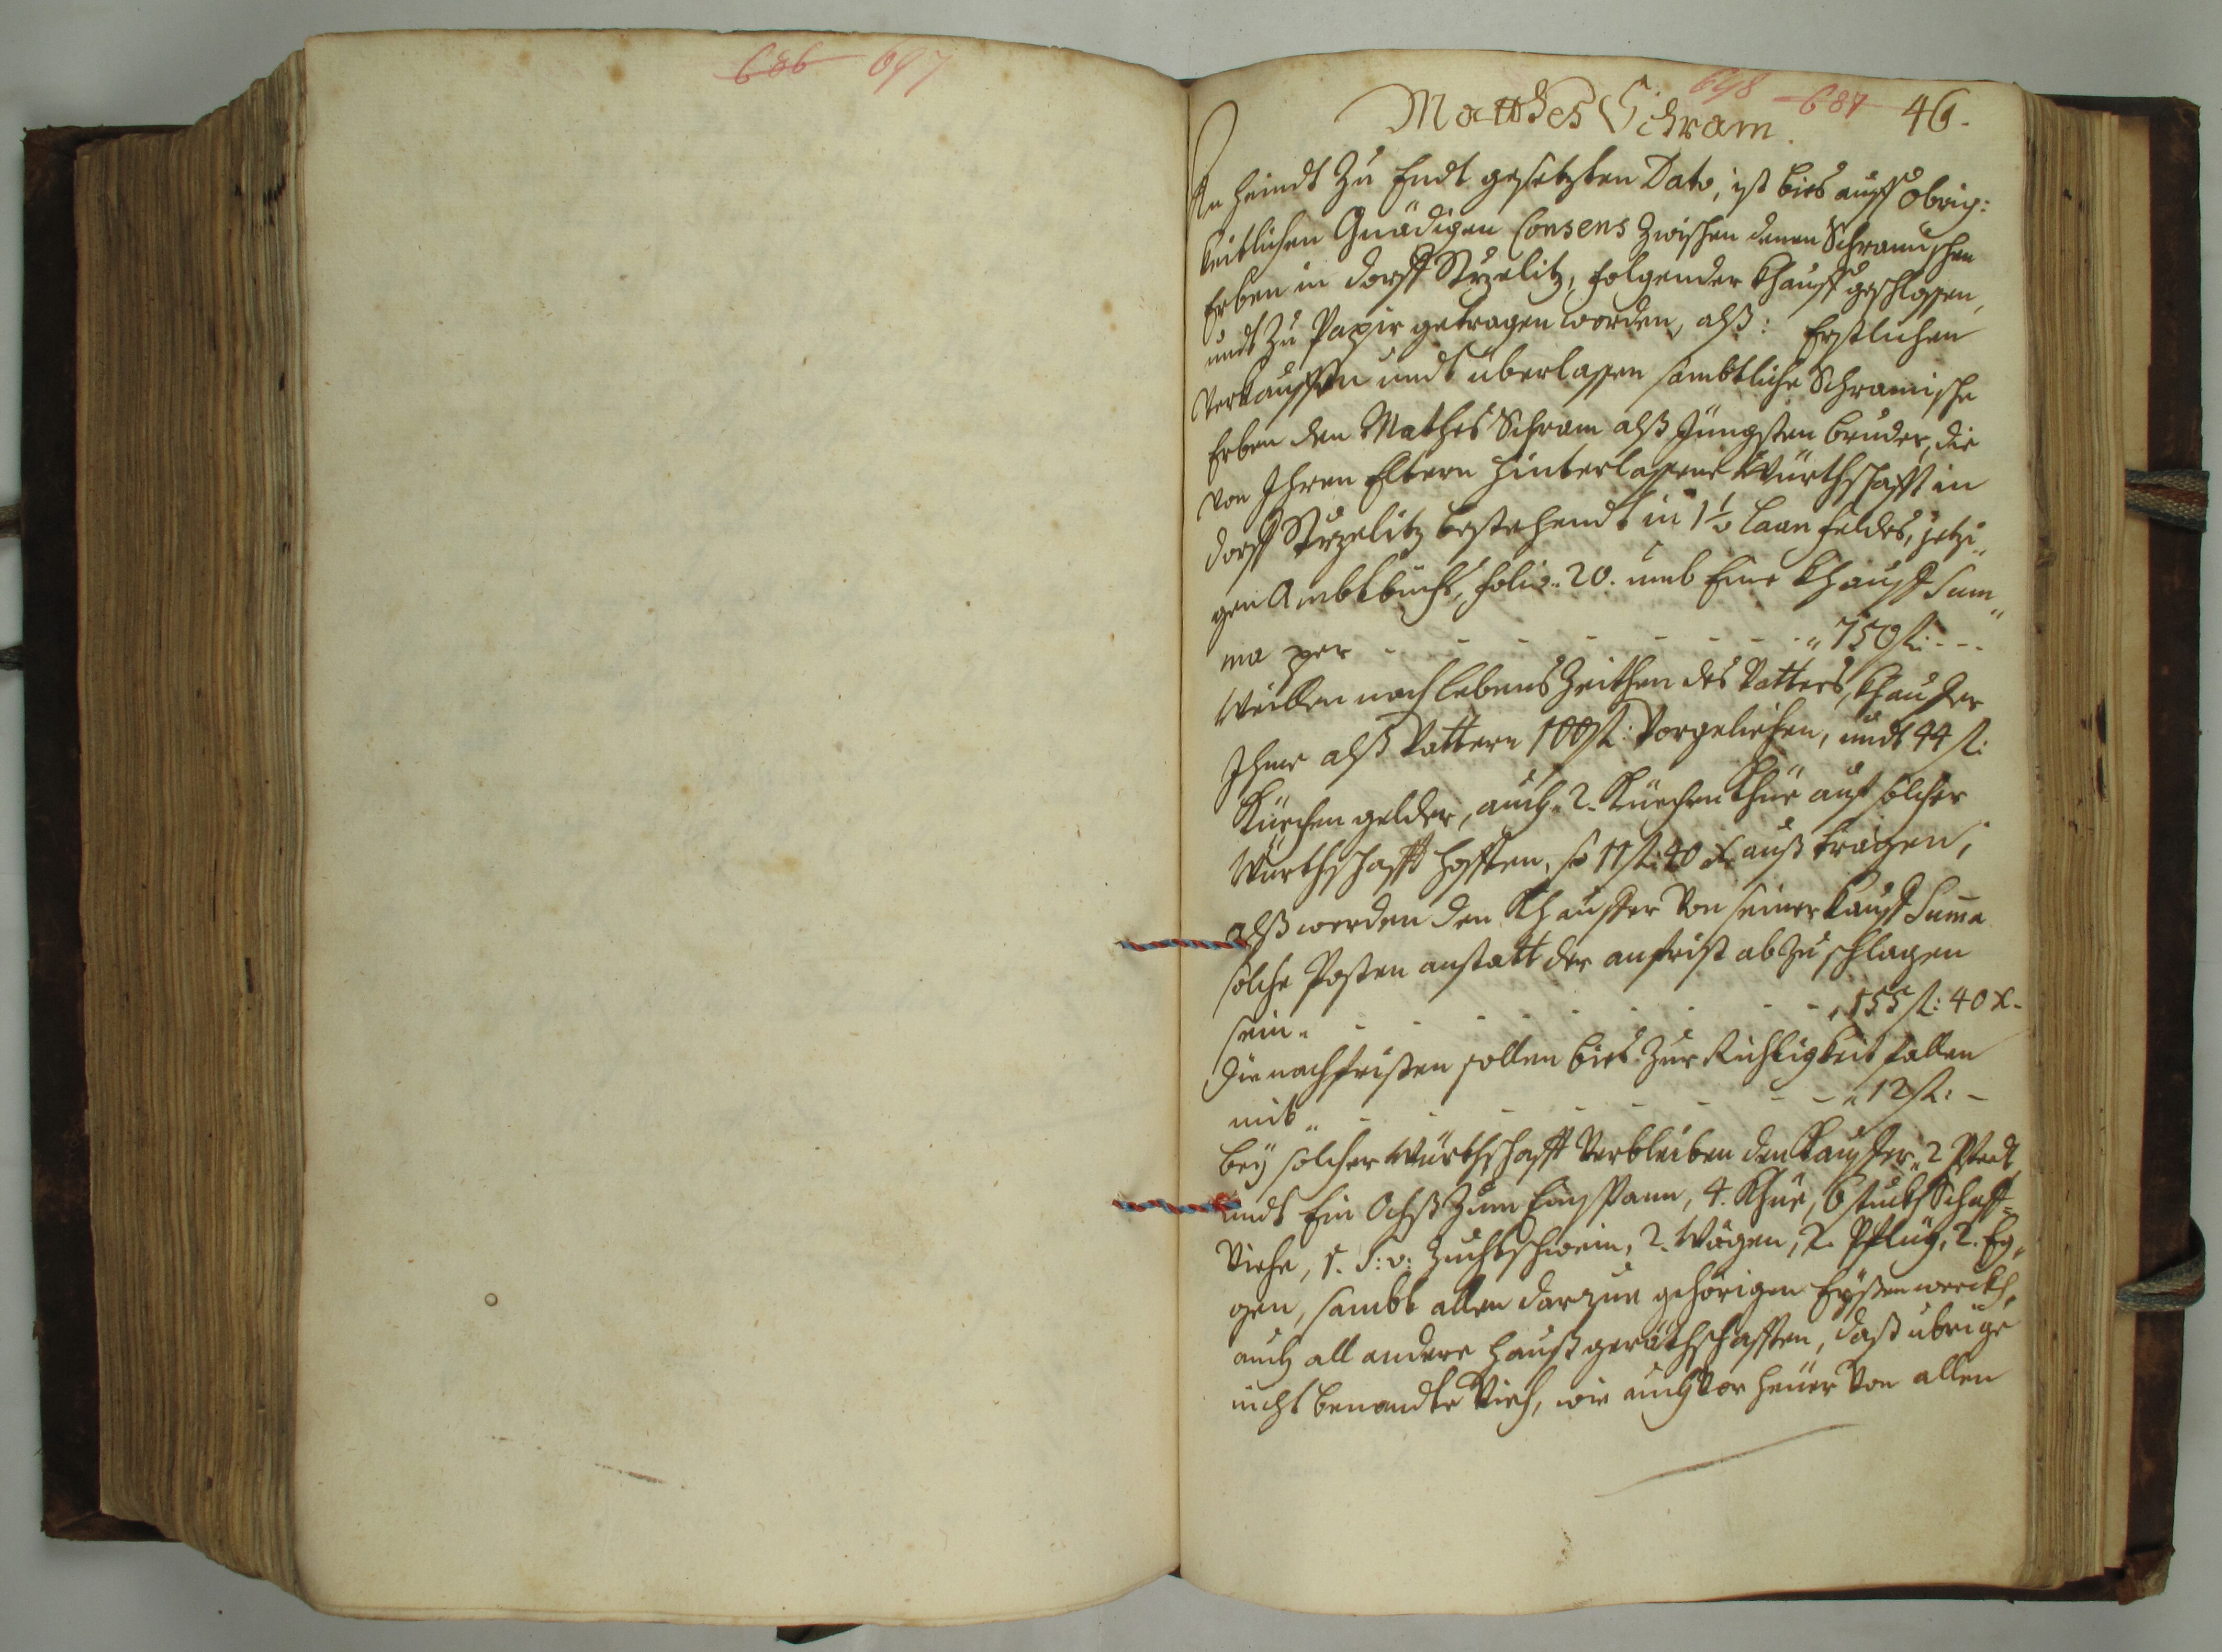 686 697
698 687 46.
Matthes Schram.
An heundt zu Endt gesetzten Dato, ist bies auff obrig:
keitlichen Gnädigen Consens zwischen denen Schramischen
Erben in dorff Strzelitz, folgender Khauff geschlossen,
undt zu Papir getragen worden, alß: Erstlichen
verkauffen undt überlassen sambtliche Schramische
Erben den Mathes Schram alß Jüngsten bruder, die
von Ihren Eltern hinterlassene Würthschafft in
dorff Strzelitz bestehendt in 1½ laan feldes, jetzi„
gen Ambtbuchs, folio„ 20. umb Eine Khauff Sum„
ma per - - - - - - - - „750 fl: - - -
Weillen nach lebens Zeithen des Vatters, Khauffer
Ihme alß Vattern 100 fl: Vorgeliehen, undt 44 fl:
Kürchen gelder, auch 2. Kürchen Khüe auf solcher
Würthschafft hafften, so 11 fl: 40 x auß tragen,
alß werden den Khauffer Von seiner Kauff Summa
solche Posten anstatt der anfrist abzuschlagen
sein„ - - - - - - - - „155 fl: 40 x.
Die nachfristen sollen bies zur Richtigkeit fallen
mit„ - - - - - - - - „12 fl: -
bey solcher Würthschafft Verbleiben den Kauffer„ 2 Pferdt
undt Ein Ochß zum Einspann, 4. Khüe, 6 stuckh Schaff=
Viehe, 1. S: v: Zuchtschwein, 2. Wägen, 2. Pflüg, 2. Eg„
gen, sambt allen darzue gehörigen Eyßenwerckh,
auch all andere Haußgeräthschafften, daß übrige
nicht benandte Vieh, wie auch Vor heüer Von allen